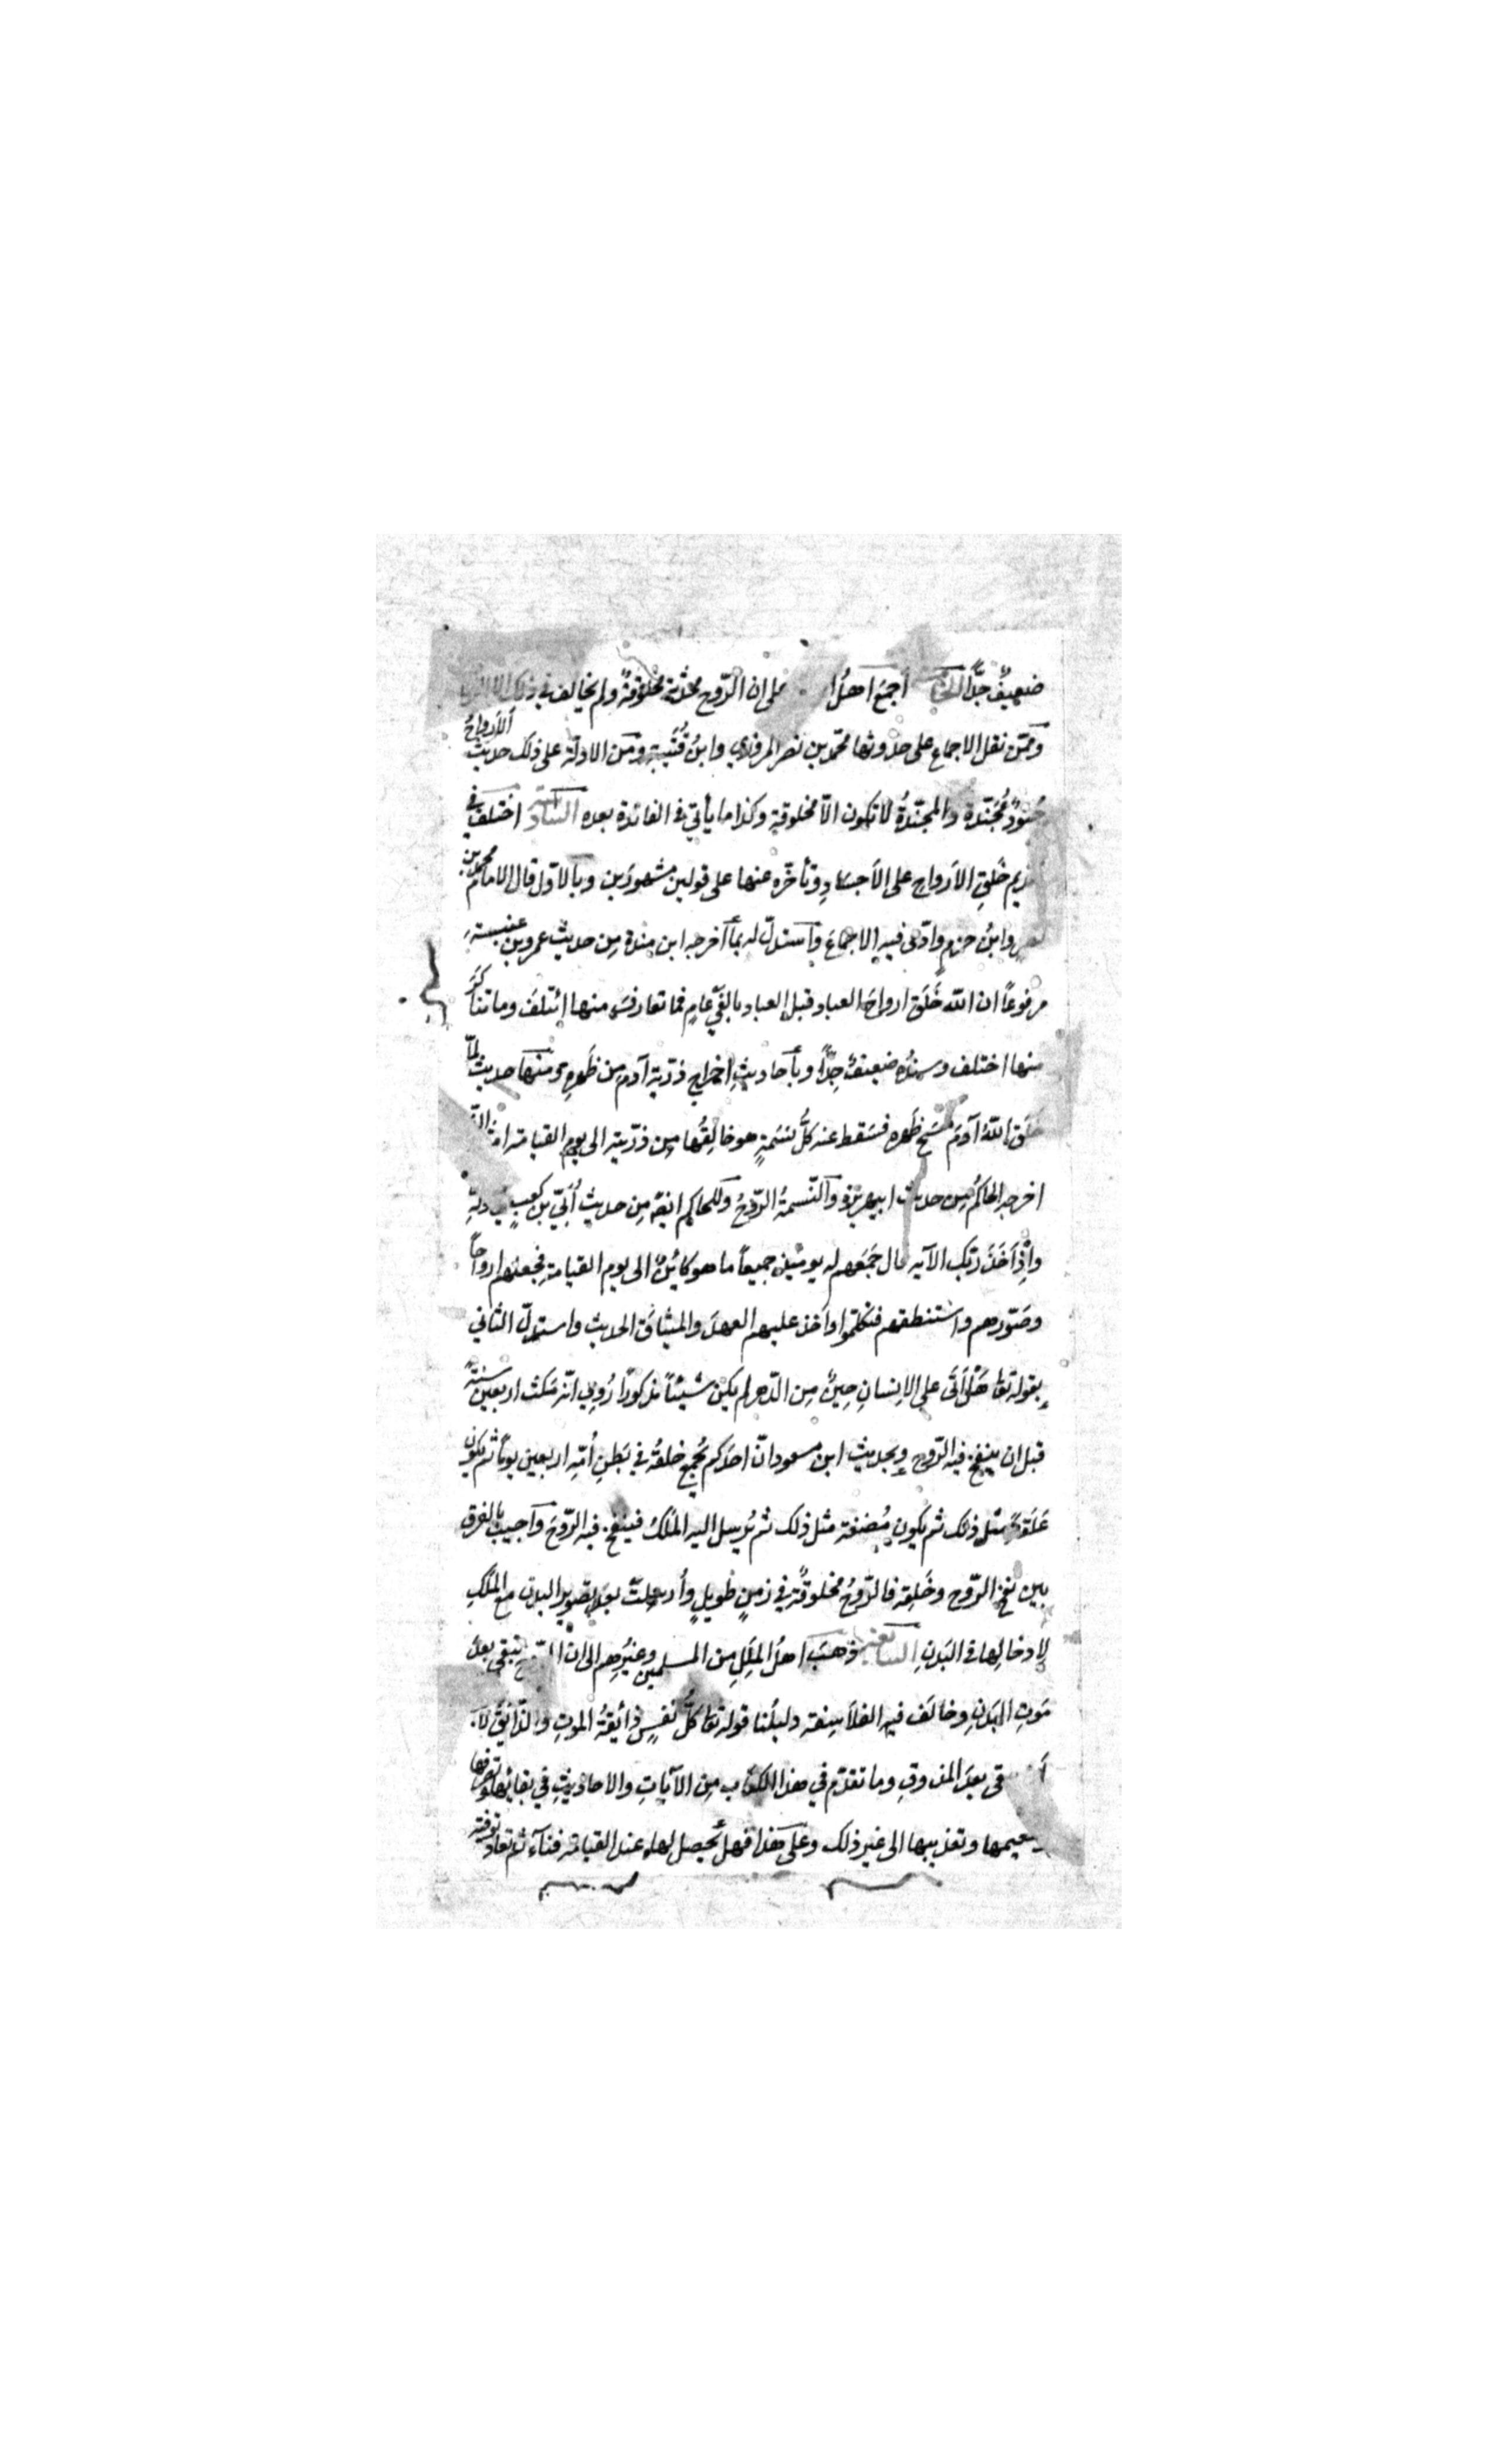 ضعيفٌ جدًّا الخامسة أجمعَ اهلُ على ان الرّوح محدثة مخلوقةٌ ولم يخالف في ذلك الا
وممّن نقل الاجماع على حدوثها محمّد بن نصر المروزي وابنُ قُتَيبة ومن الادلّة على ذلك حديث الأرواحُ
جُنودٌ مُجَنّدة والمجنّدةُ لا تكون الّا مخلوقة وكذا ما يأتي في الفائدة بعده السادسة اختلف في
تقديم خَلقِ الأرواح على الأجسَادِ وتأخّره عنها على قولين مشهورَين وبالاوّل قال الامام محمد بن
نصر وابنُ حزمٍ وادّعى فيه الاجماعَ واستدلّ له بما أخرجه ابن مندة مِن حديث عمرو بن عنبسة
مرفوعاً ان اللّه خَلَق ارواحَ العباد قبل العباد بالفَي عامٍ فما تعارفَ منها إئتلفَ وما تناكَرَ
منها اختلف وسندُه ضعيفٌ جِدّاً وبأحاديثِ اخراج ذرّية آدم مِن ظَهره ومنها حديث لمّا
خَلَق اللّهُ آدمَ مَسَح ظَهره فسَقط عنه كلُّ نسَمةٍ هو خالِقُها مِن ذرّيته الى يوم القيامة امثالَ الذّر
اخرجه الحاكمُ مِن حديث ابي هريرة والنّسمةُ الرّوحُ وللحاكم ايضًا مِن حديث أُبَيّ بن كعبٍ في قوله
واِذْ اَخَذَ ربّك الآيه قال جَمَعهم له يومئِذٍ جميعاً ما هو كائِنٌ الى يوم القيامةِ فجعلهم ارواحاً
وصَوّرهم واستنطقهم فتكلّموا واَخذ عليهم العهدَ والميثاقَ الحديث واستدلّ الثاني
بقوله تعا هَلْ أَتَى على الإنسانِ حِينٌ مِن الدّهر لم يكن شيئاً مذكورًا رُوي انّه مَكث اربعين سنةً
قبل ان ينفخ فيه الرّوح وبحديث ابن مسعود انّ احدَكم يُجمع خلقُهُ في بَطنِ أُمّه اربعين يوماً ثم يكون
عَلَقةً مثل ذلك ثم يكون مُضغة مثل ذلك ثم يُرسل اليه المَلَكُ فينفخ فيه الرّوحَ وأجيب بالفرق
بين نفخ الرّوح وخَلقِه فالرّوحُ مخلوقةٌ في زمنٍ طويلٍ وأُرسِلَت بعدَ تصوير البدن مع المَلَكِ
لإدخالِها في البَدنِ السابعة ذهبَ اهلُ المِلَلِ مِن المسلمين وغيرُهم الى ان الرّوح تبقى بعدَ
مَوتِ البَدنِ وخالَف فيه الفلاسِفة دليلُنا قوله تعا كلُّ نفسٍ ذائقةُ الموتِ والذّائقُ لا
بقى بعدَ المذوقِ وما تقدّم في هذا الكتاب مِن الآياتِ والاحاديثِ في بقائِها وتصرّفها
وتنعيمها وتعذيبها الى غير ذلك وعلى هذا فهل يَحصل لها عند القيامة فناءٌ ثم تعاد توفيته